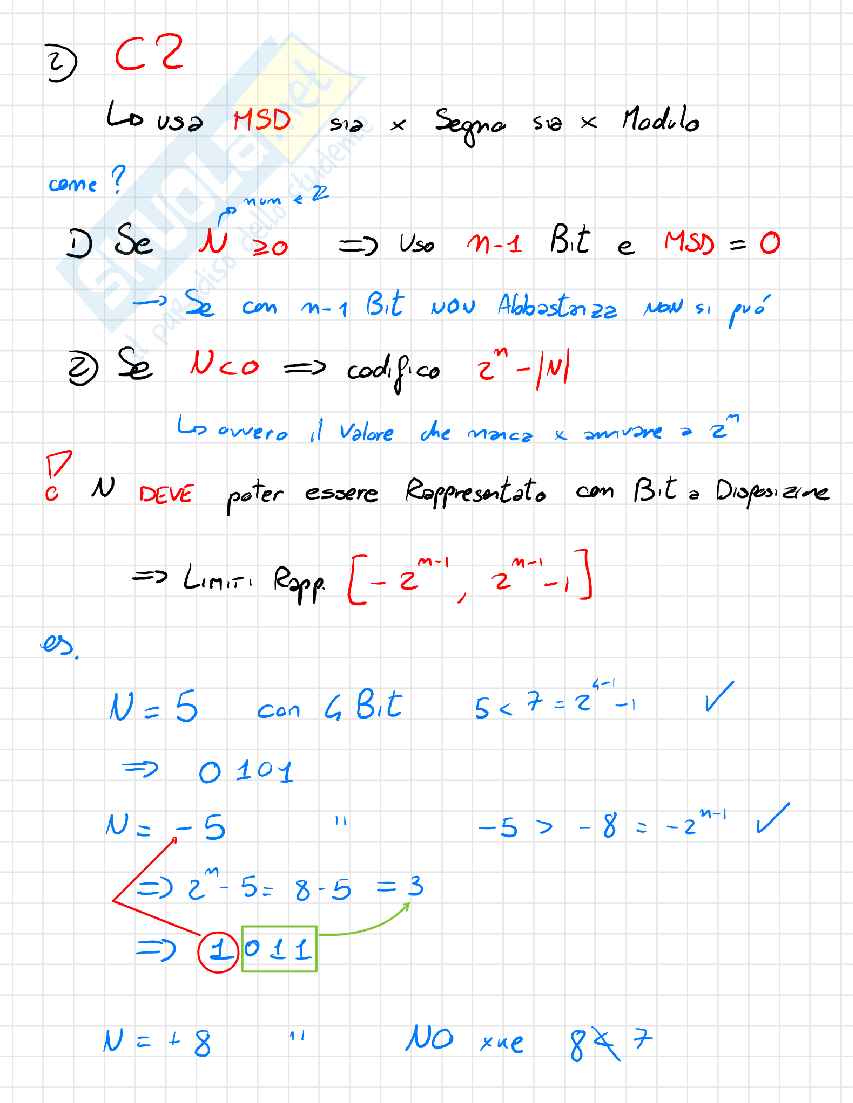 2) C2
↳ usa MSD sia x Segno sia x Modulo
come?
num ∈ ℤ
1) Se N ≥0 ⇒ Uso n-1 Bit e MSD = 0
→ Se con n-1 Bit NON Abbastanza NON si può
2) Se N<0 ⇒ codifico 2^n - |N|
↳ ovvero il Valore che manca x arrivare a 2^n
! N DEVE poter essere Rappresentato con Bit a Disposizione
⇒ Limiti Rapp. [-2^{n-1}, 2^{n-1}-1]
es.
N = 5 con 4 Bit 5 < 7 = 2^{4-1} -1 ✓
⇒ 0101
N = -5 " -5 > -8 = -2^{n-1} ✓
⇒ 2^n - 5 = 8 - 5 = 3
⇒ 1 011
N = +8 " NO xke 8 ≮ 7
SKUOLA.net
il paradiso dello studente